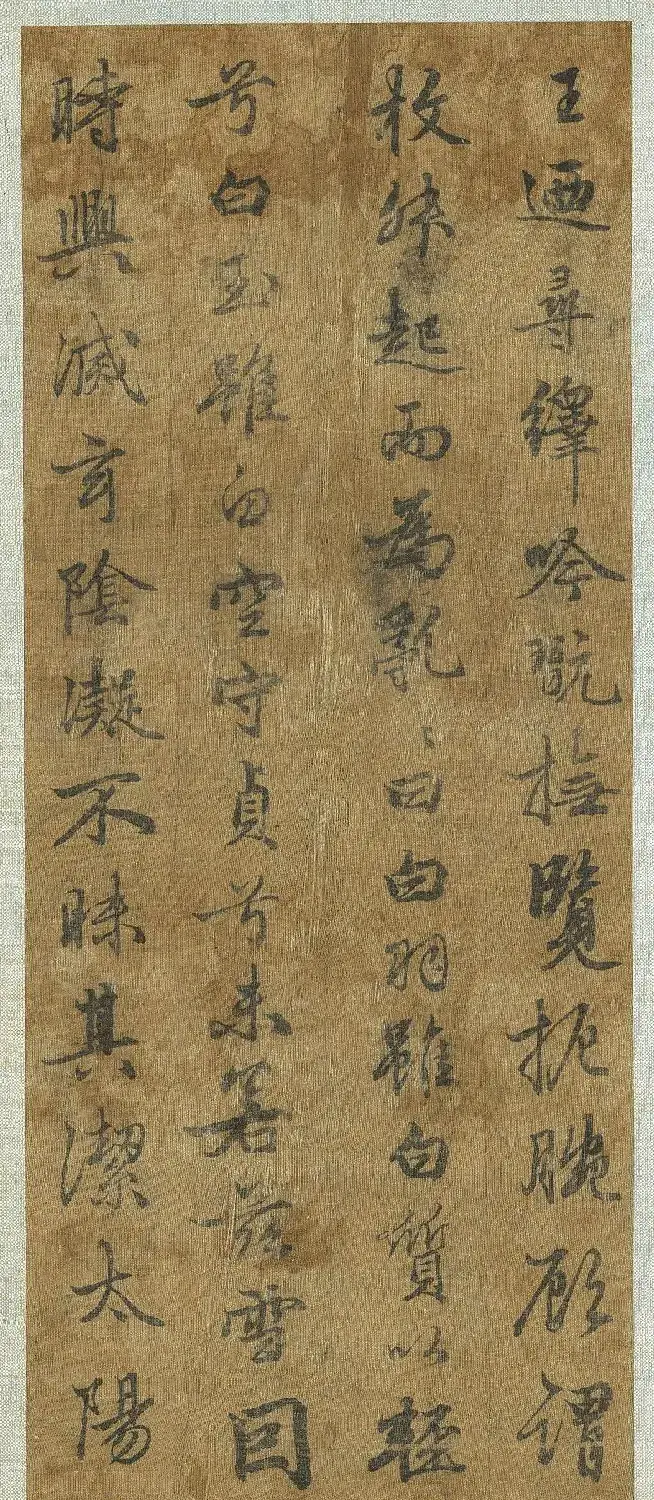 王迺尋繹吟翫撫覽扼腕顧謂
枚叔起而為亂〻曰白羽雖白質以輕
兮白玉雖白空守貞兮未若茲雪囙
時興滅玄陰凝不昧其潔太陽